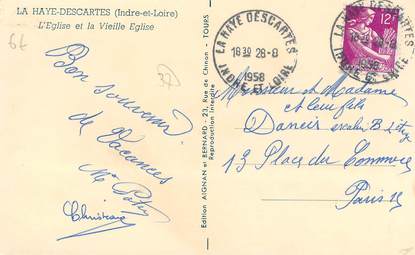 LA HAYE-DESCARTES (Indre-et-Loire)
L'Eglise et la Vieille Eglise
Bon souvenir
de Vacances
Edition AIGNAN et BERNARD - 23, Rue de Chinon - TOURS
Reproduction interdite
LA HAYE DESCARTES
18 30 28-8
1958
INDRE-ET-LOIRE
12F
Monsieur et Madame
et leur fils
escalier B
13 Place du Commerce
Paris